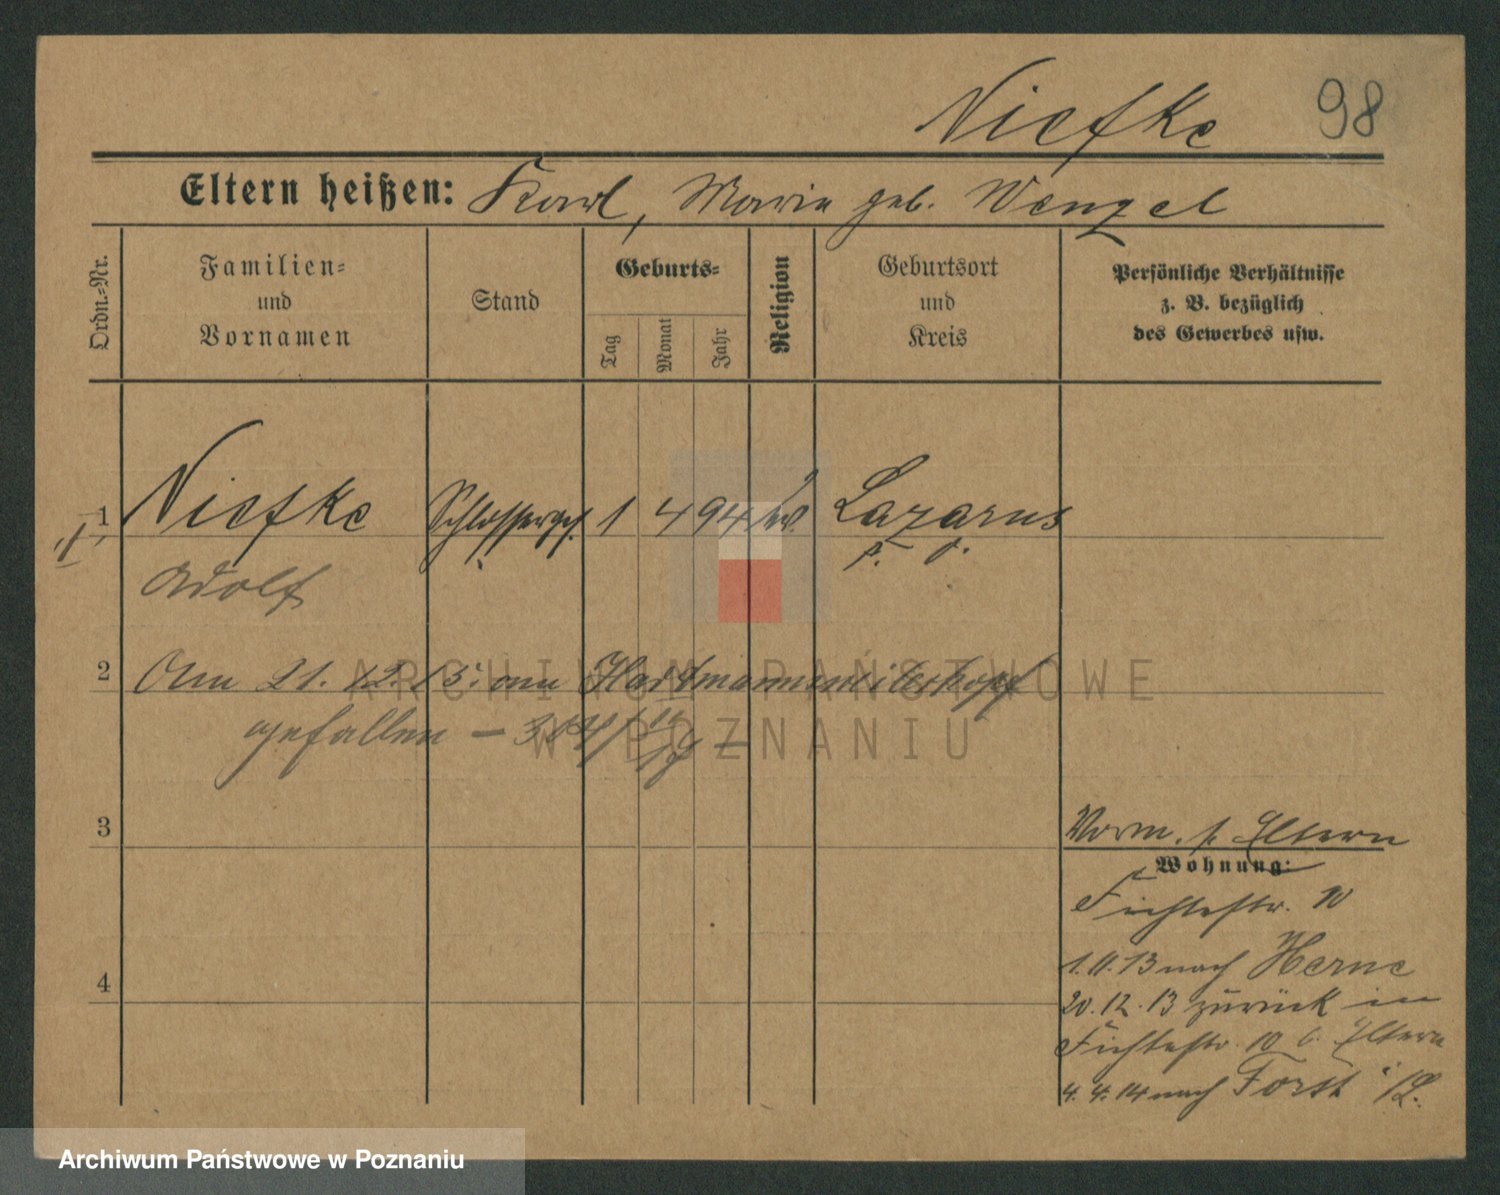 Niefke 98
Eltern heißen: Karl, Marie geb. Wenzel
Ordn.=Nr.
Familien=
und
Vornamen
Stand
Geburts=
Tag
Monat
Jahr
Religion
Geburtsort
und
Kreis
Persönliche Verhältnisse
z. B. bezüglich
des Gewerbes usw.
1 Niefke Schlosserges. 1 4 94 ev. Lazarus
Adolf
2 Am 21. 12. 15. am Hartmannsweilerkopf
gefallen —
ARCHIWUM PAŃSTWOWE
W POZNANIU
3
Vorm. s. Eltern
Wohnung:
Fichtestr. 10
4
1.11.13 nach Herne
20.12.13 zurück in
Fichtestr. 10 b. Eltern
4.4.14 nach Forst i/L.
Archiwum Państwowe w Poznaniu